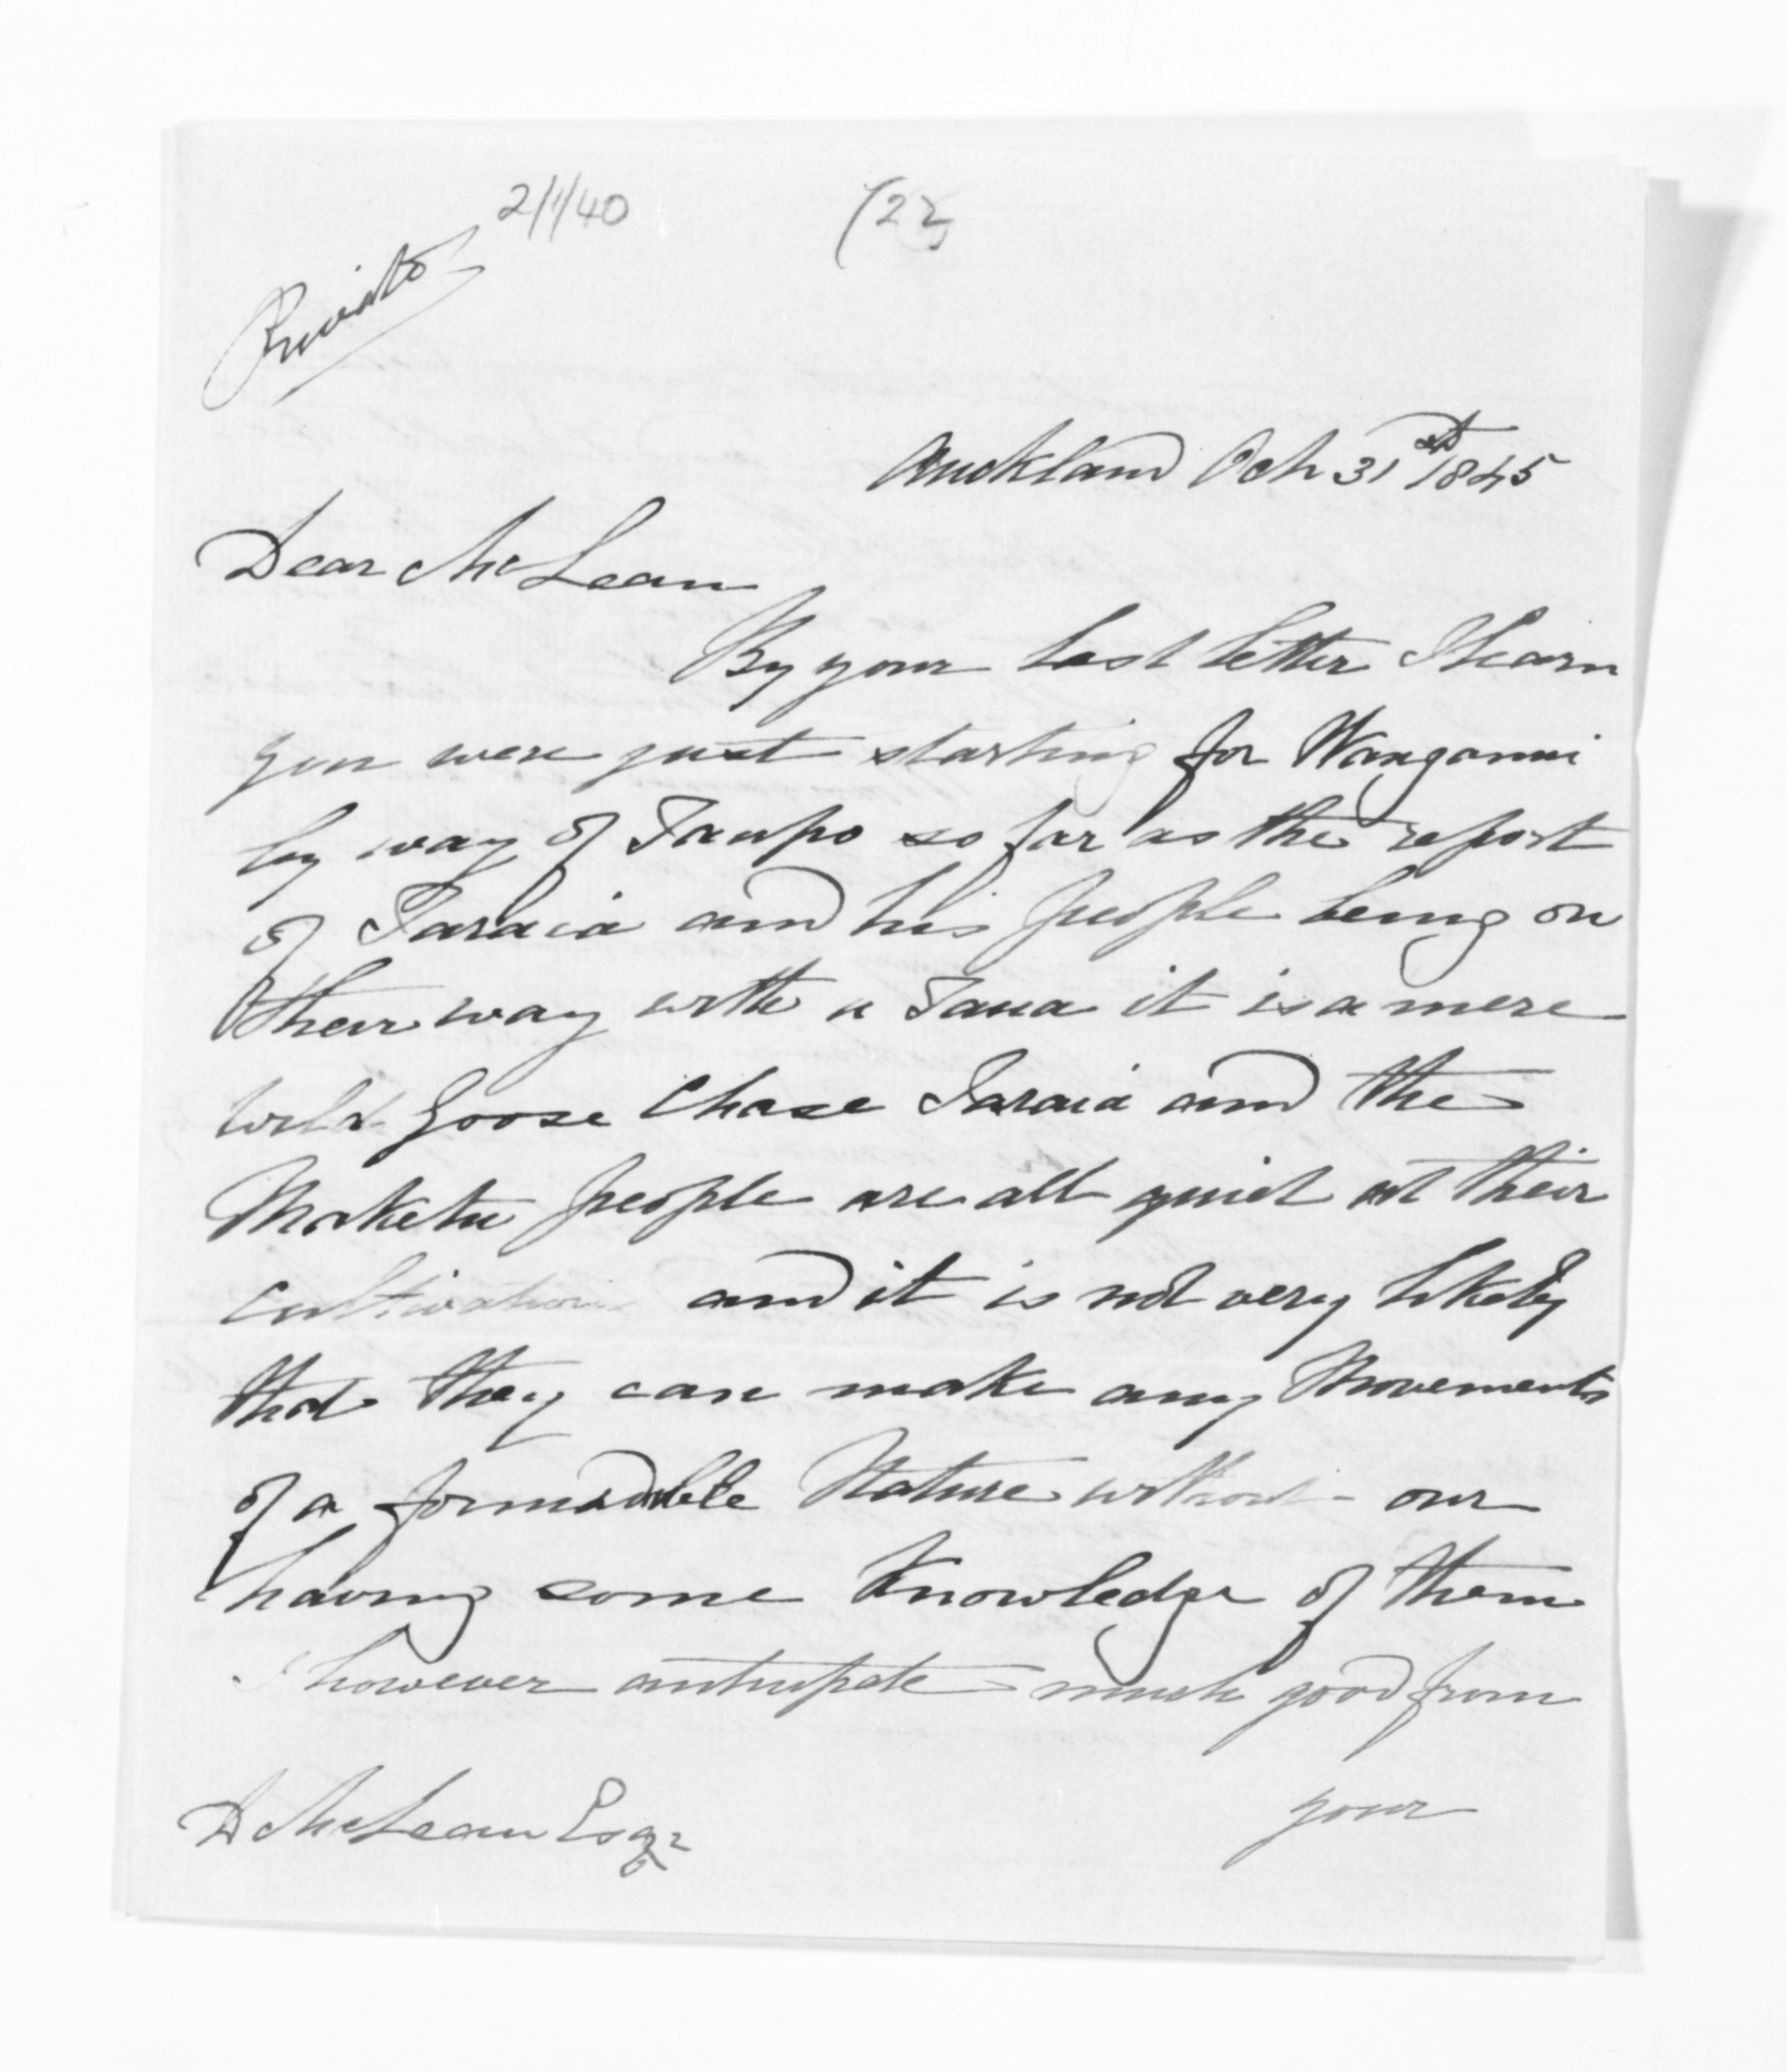 2/1/40
(22
Private
Auckland Oct 31st 1845
Dear McLean
By your last letter I learn
you were just starting for Wanganui
by way of Taupo so far as the report
of Taraia and his people being on
their way with a Taua it is a mere
wild Goose Chase Taraia and the
Maketu people are all quiet at their
cultivations and it is not very likely
that they can make any Movements
of a formidable Nature without our
having some Knowledge of them
I however anticipate much good from
your
D McLean Esqr